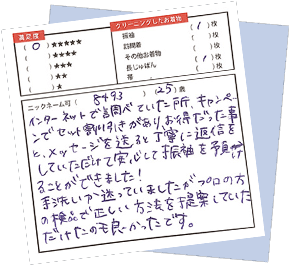 満足度
クリーニングしたお着物
(0)★★★★★
( )★★★★
( )★★★
( )★★
( )★
振袖 (1)枚
訪問着 ( )枚
その他お着物 ( )枚
長じゅばん ( )枚
帯 (1)枚
ニックネーム可 ( 8493 ) ( 25 )歳
インターネットで調べていた所、キャンペー
ンでセット割引きがありお得だった事
と、メッセージを送ると丁寧に返信を
していただけて安心して振袖を預け
ることができました!
手洗いか迷っていましたがプロの方
の検品で正しい方法を提案していた
だけたのも良かったです。